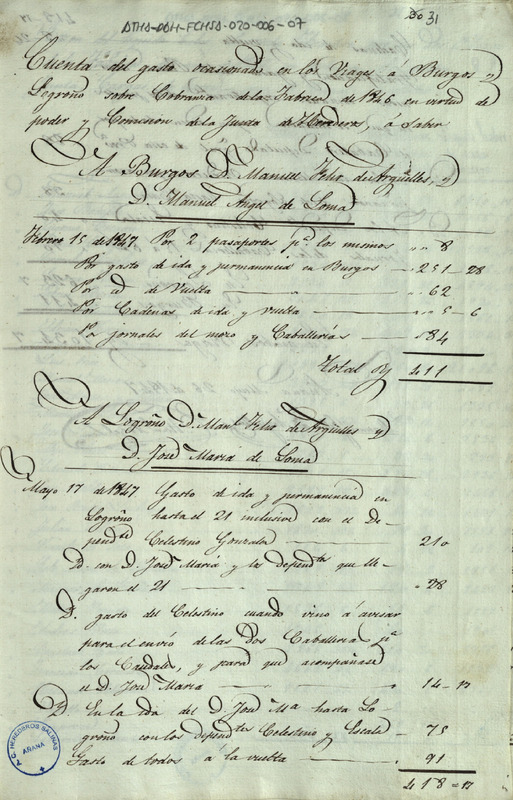 ATHA-DAH-FCHSA-020-006-07
31
Cuenta del gasto ocasionado en los Viages a Burgos y
Logroño sobre Cobranza de la Fabrica de 1846, en virtud de
poder y Comision de la Junta de Herederos, á Saber
A Burgos D. Manuel Felix de Argüelles, y
D. Manuel Angel de Loma
Febrero 15 de 1847. Por 2 pasaportes pª los mismos " " 8
Por gasto de ida y permanencia en Burgos — " 251 – 28
Por id de Vuelta — " 62
Por Cadenas de ida y vuelta — " " 5 – 6
Por jornales del mozo y Caballerías — " 84
Total 411
A Logroño D. Manl Felix de Argüelles y
D. José Maria de Loma
Mayo 17 de 1847. Gasto de ida y permanencia en
Logroño hasta el 21 inclusive con el De-
pendte Celestino Gonzalo — 210
Id con D. José Maria y los dependtes que lle-
garon el 21 — " 28
Id. gasto del Celestino cuando vino á avisar
para el envio de las dos Caballerias pª
los Caudales, y para que acompañase
el D. José Maria — " 14 – 17
Id. En la ida del D. José Mª hasta Lo-
groño con los dependtes Celestino y — 75
Gasto de todos a la vuelta — " 91
418 = 17
C. HEREDEROS SALINAS
AÑANA